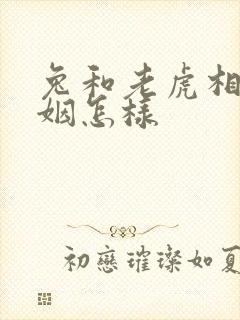 兔和老虎相
姻怎样
初戀璀璨如夏